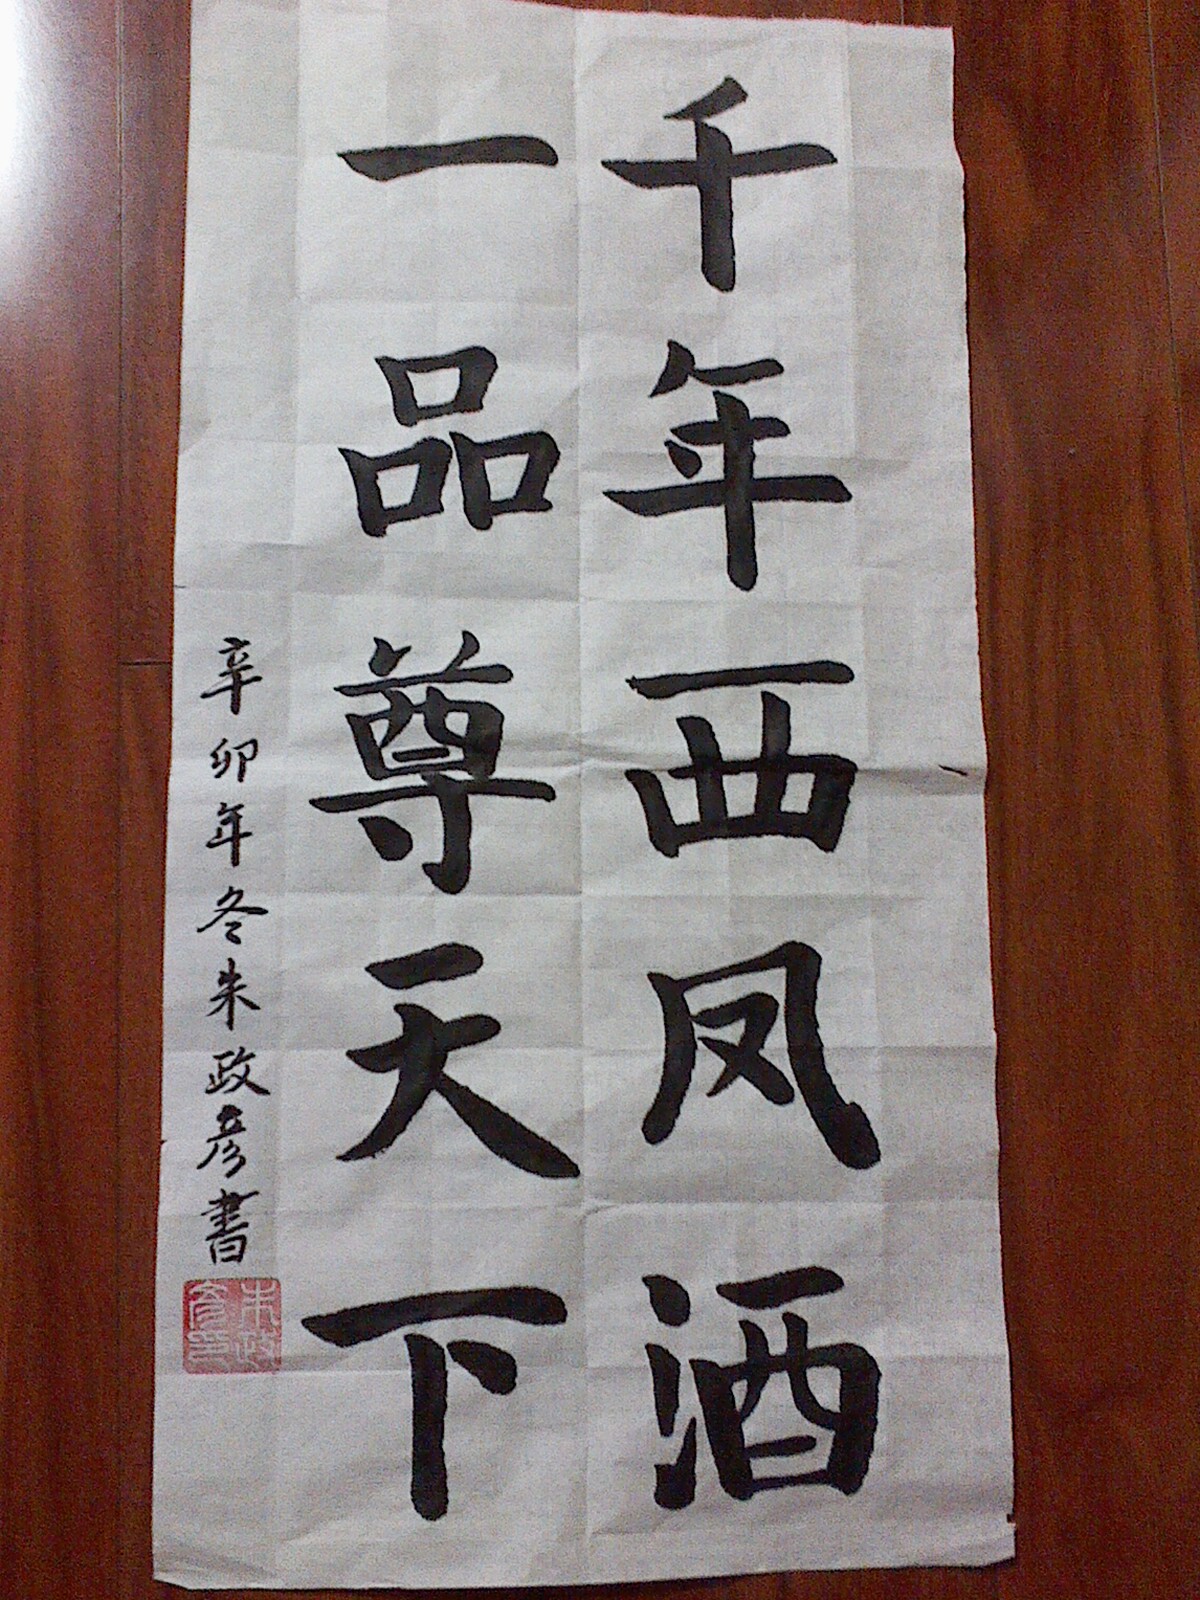 千年西凤酒
一品尊天下
辛卯年冬朱政彦書
朱政彦印